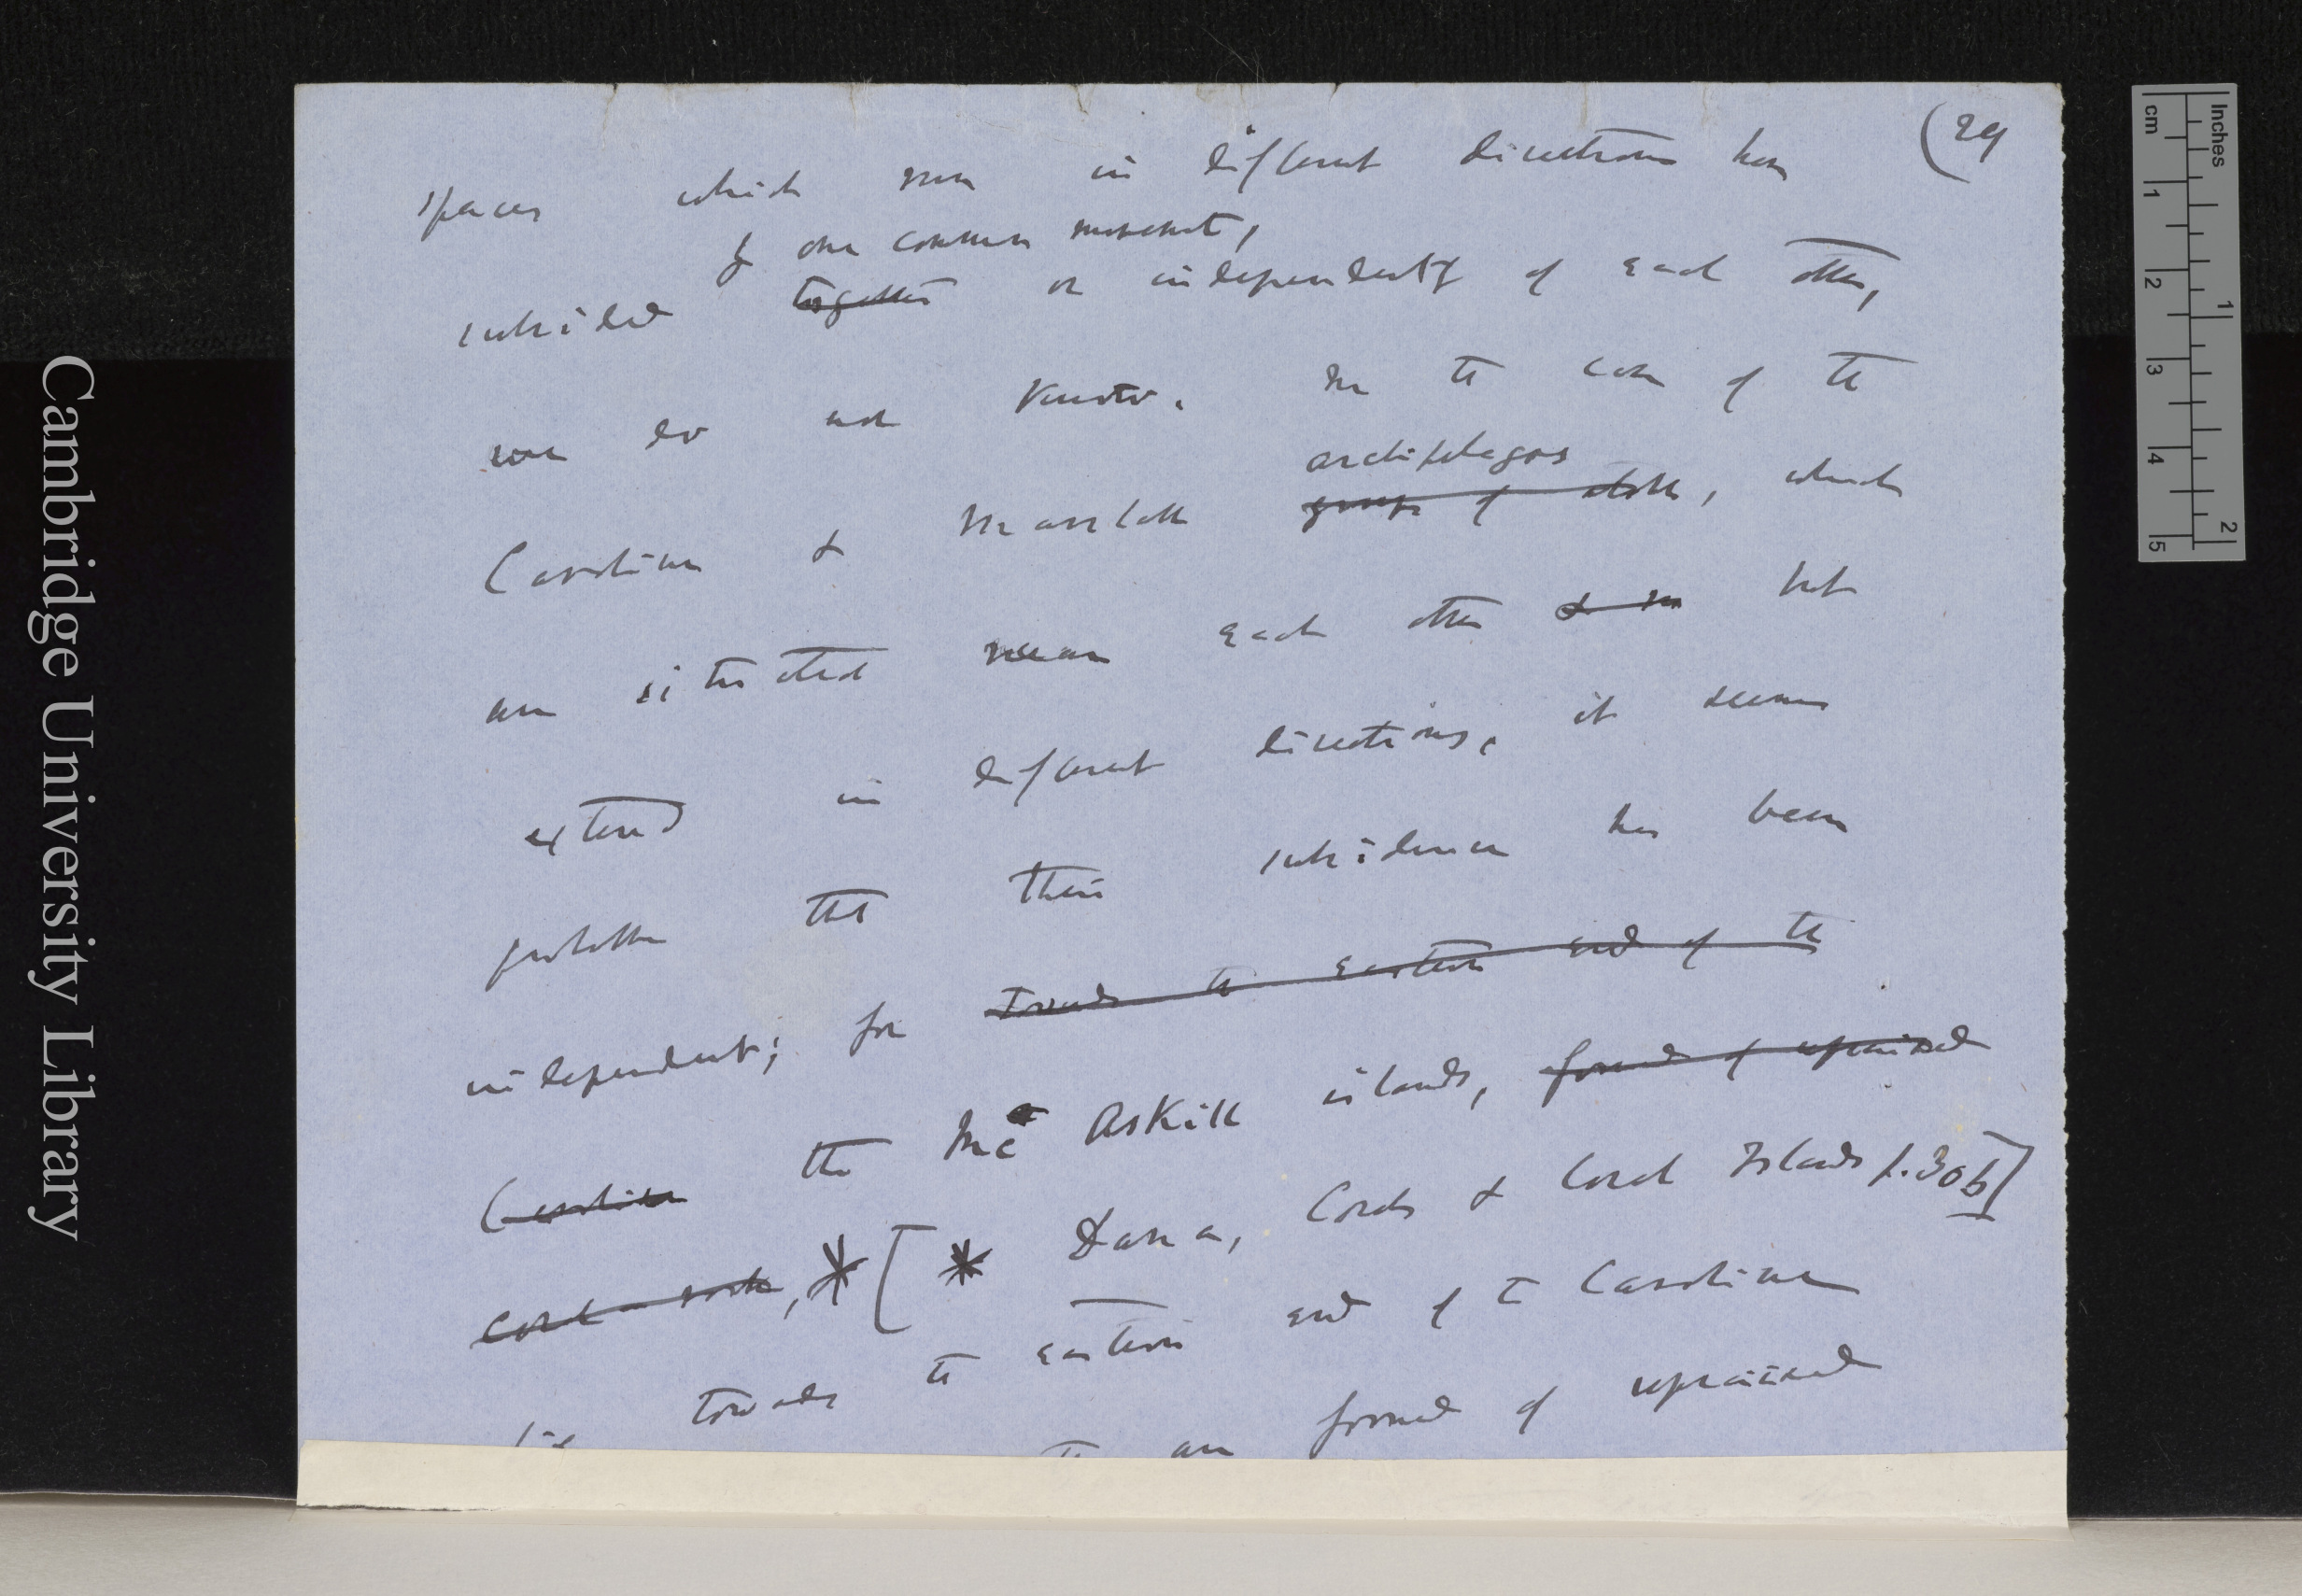 (29
spaces which run in different directions have
by one common movement,
subsided together or independently of each other,
we do not know. In the case of the
archipelagos
Caroline & Marshall groups of atolls, which
are situated near each other & in but
extend in different directions, it seems
probable that their subsidence has been
independent; for Towards the eastern end of the
Caroline the Mc Askill islands, formed of upraised
coral-rock, * [* Dana, Corals & Coral Islands p. 306]
lie towards the eastern end of the Caroline
are formed of upraised
Cambridge University Library
Inches
1
2
cm
1
2
3
4
5